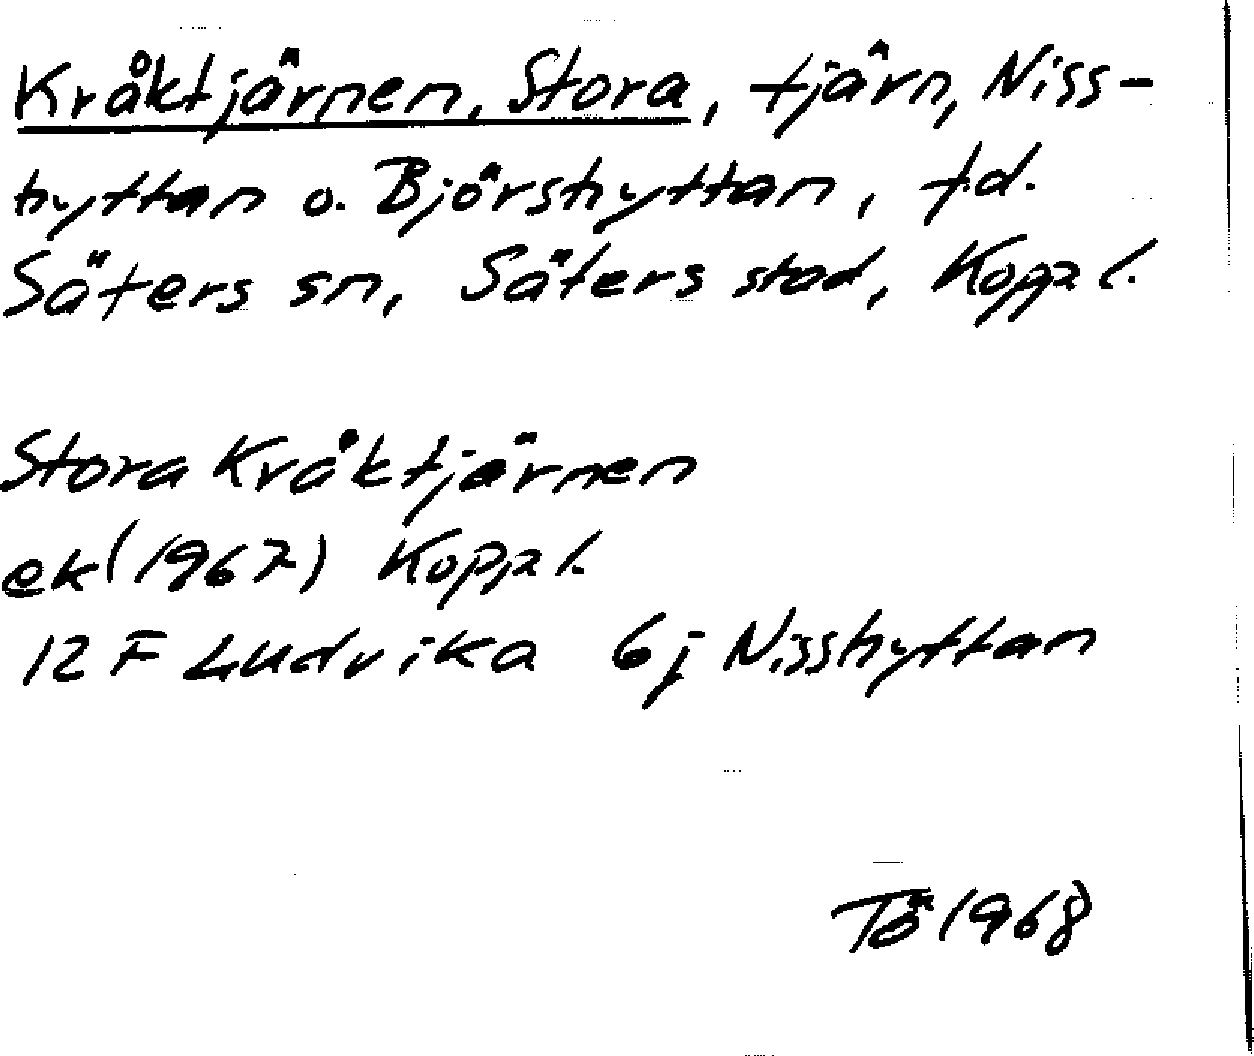 Kråktjärnen, Stora, tjärn, Niss-
hyttan o. Björshyttan, f.d.
Säters sn, Säters stad, Kopp l.
Stora Kråktjärnen
ek (1967) Kopp l.
12 F Ludvika 6 j Nisshyttan
Tö 1968